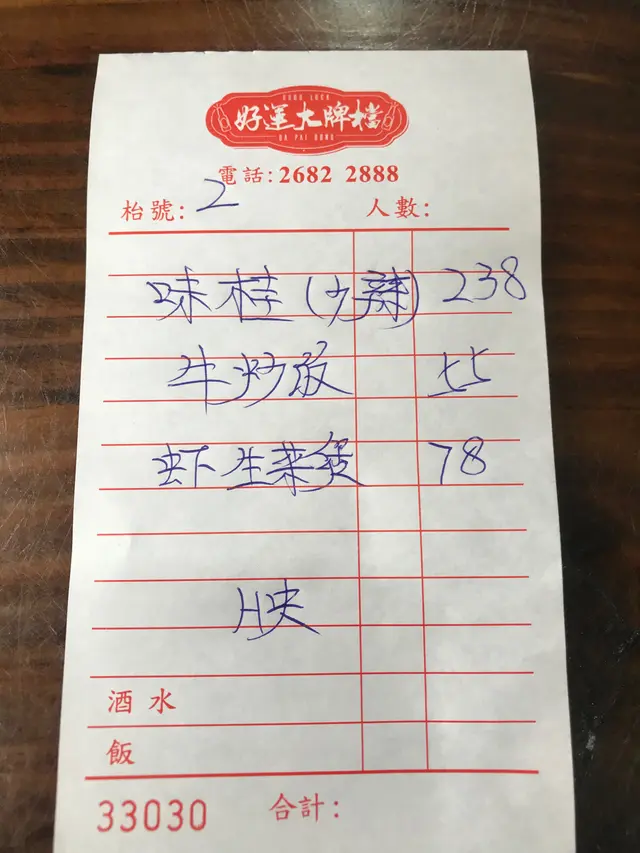 GOOD LUCK
好運大牌檔
DA PAI DONG
電話: 2682 2888
枱號: 2 人數:
味桂 (少辣) 238
牛炒飯 55
虾生菜煲 78
酒水
飯
33030 合計: